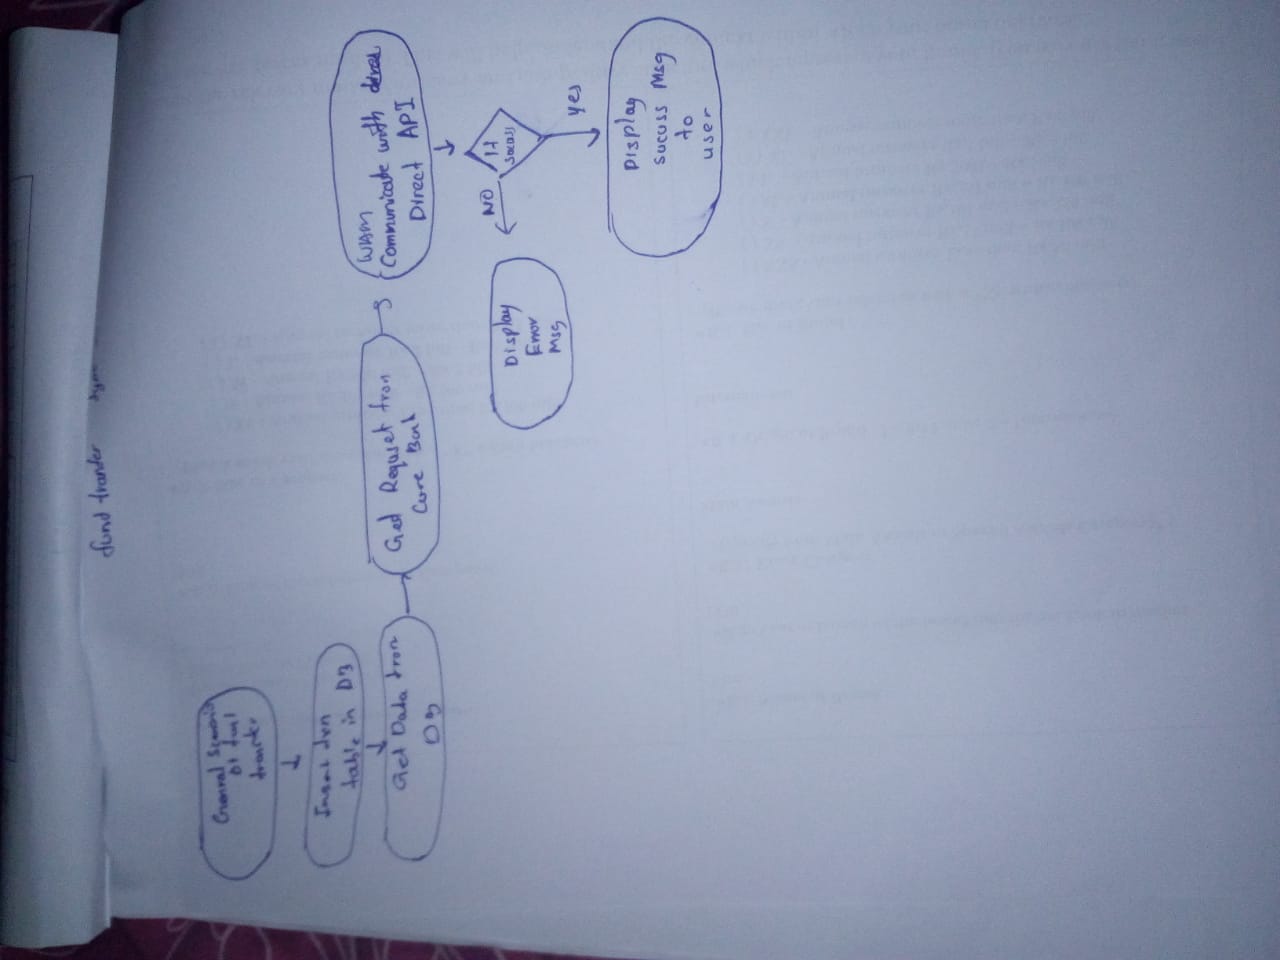 fund tranfer
General Scenario
of fund
transfer
Insert trn
table in DB
Get Data from
DB
Get Requset from
Core Bank
WBM
Communicate with
Direct API
If
sucuss
NO
yes
Display
Error
Msg
Display
sucuss Msg
to
user